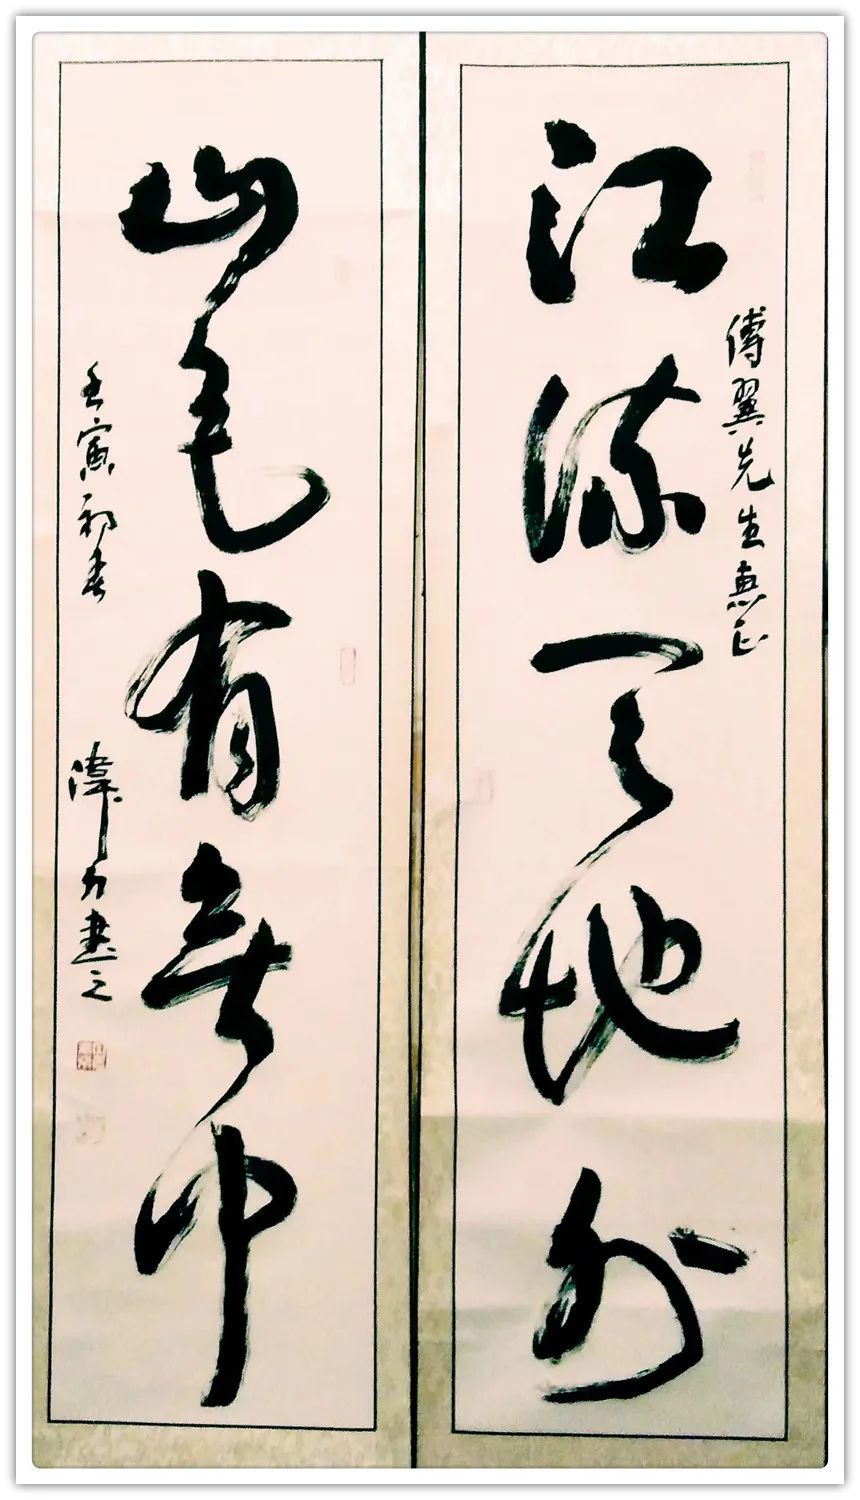 傅翼先生惠正
江流天地外
山色有無中
壬寅初春
書之